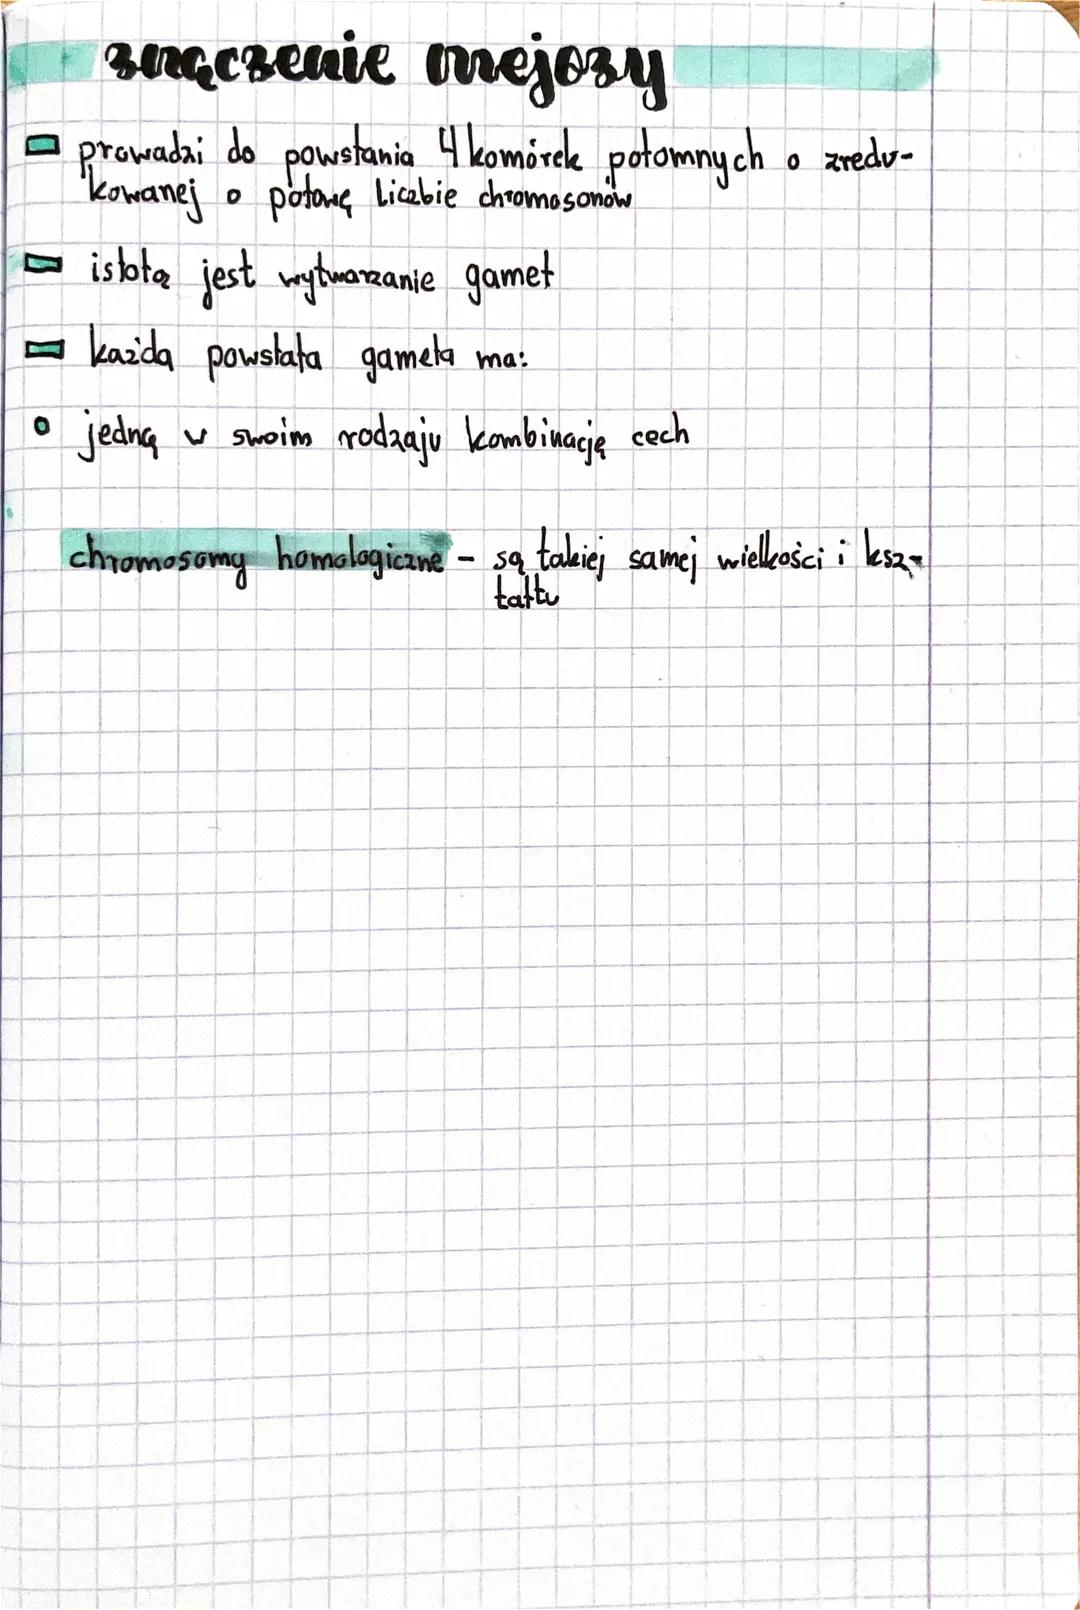 znaczenie mejozy
prowadzi do powstania 4 komórek potomnych o zredu-
kowanej o połowę liczbie chromosonów
istotą jest wytwarzanie gamet
każda powstała gameta ma:
jedną w swoim rodzaju kombinację cech
chromosomy homologiczne - są takiej samej wielkości i ksz-
tałtu